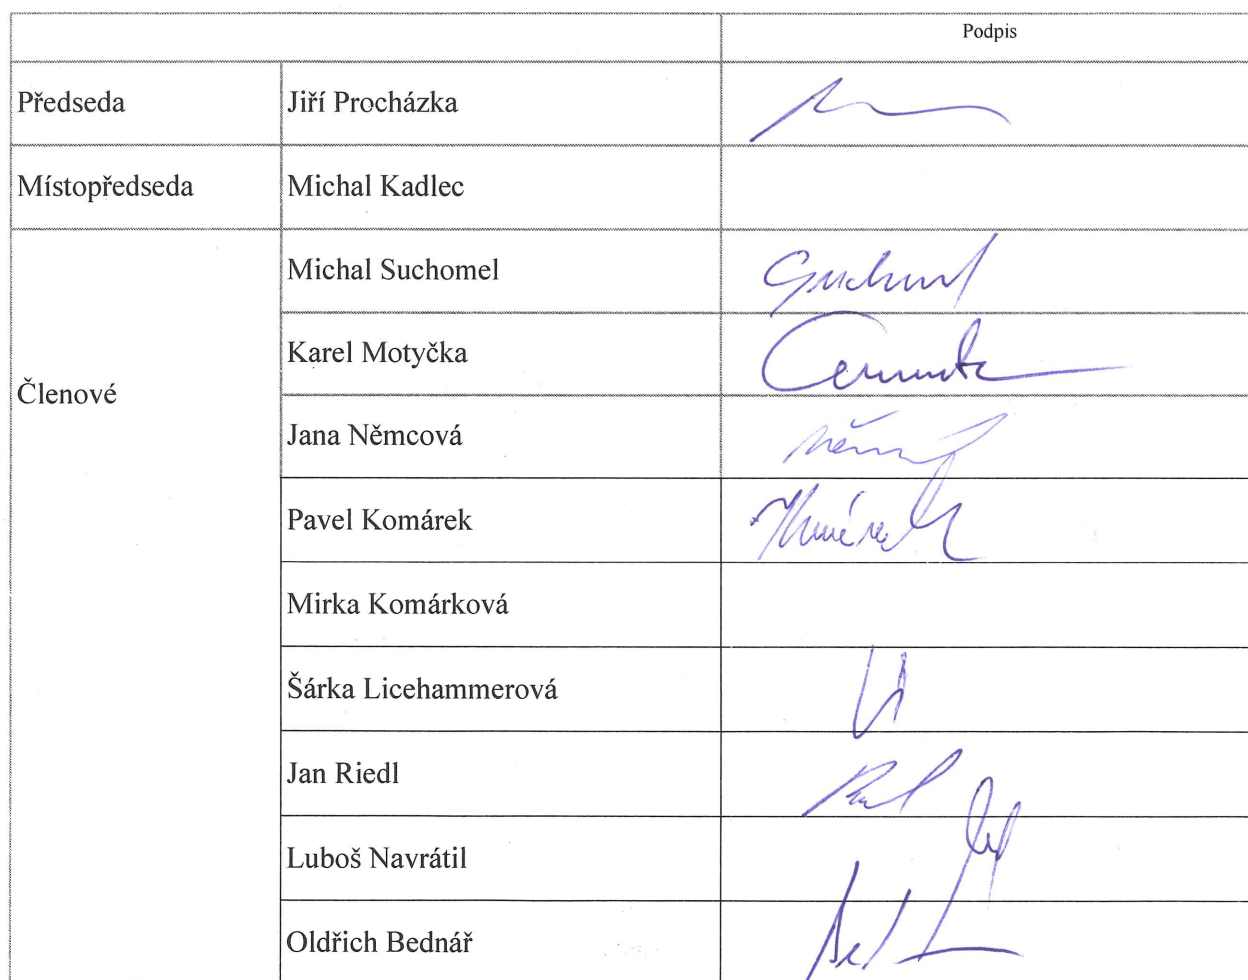 Podpis
Předseda Jiří Procházka
Místopředseda Michal Kadlec
Michal Suchomel
Karel Motyčka
Členové
Jana Němcová
Pavel Komárek
Mirka Komárková
Šárka Licehammerová
Jan Riedl
Luboš Navrátil
Oldřich Bednář